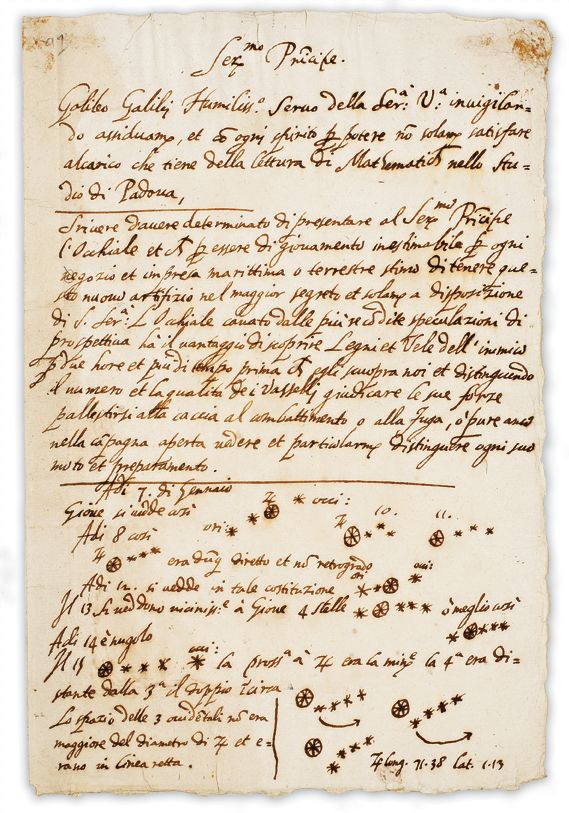 Ser.mo Prĩcipe.
Galileo Galilej Humiliss.o Servo della Ser.a V.a invigilan-
do assiduam.e, et cõ ogni spirito p potere nõ solam.e satisfare
alcarico che tiene della lettura di Mathematich nello stu-
dio di Padova,
Scrivere davere determinato di presentare al Ser.mo Prĩcipe
l'Occhiale et ch p essere di giovamento inestimabile p ogni
negozio et impresa marittima o terrestre stimo di tenere que-
sto nuovo artifizio nel maggior segreto et solam.e a disposizione
di S. Ser.a L'Occhiale cavato dalle più recõdite speculazioni di
prospettiva ha il vantaggio di scoprire Legni et Vele dell'inimico
p due hore et più di tempo prima ch egli scuopra noi et distinguendo
il numero et la qualità de i Vasselli giudicare le sue forze
pallestirsi alla caccia al combattimento o alla fuga, o pure anco
nella cãpagna aperta vedere et particularm.e distinguere ogni suo
moto et preparamento.
Adi 7. di Gennaio
Gioue si vedde così ♃ occi:
Adi 8 così ori: ♃ 10. 11.
♃ era dũq diretto et nõ retrogrado
ori occi:
Adi 12. si vedde in tale costituzione
Il 13 si veddono vicinis.e à Gioue 4 stelle o meglio così
Adi 14 è nugolo
Il 15 occi: la pross.a à ♃ era la min.e la 4.a era di-
stante dalla 3.a il doppio circa
Lo spazio delle 3 occidẽtali nõ era
maggiore del diametro di ♃ et e-
rano in linea retta.
♃ long. 71.38 lat. 1.13